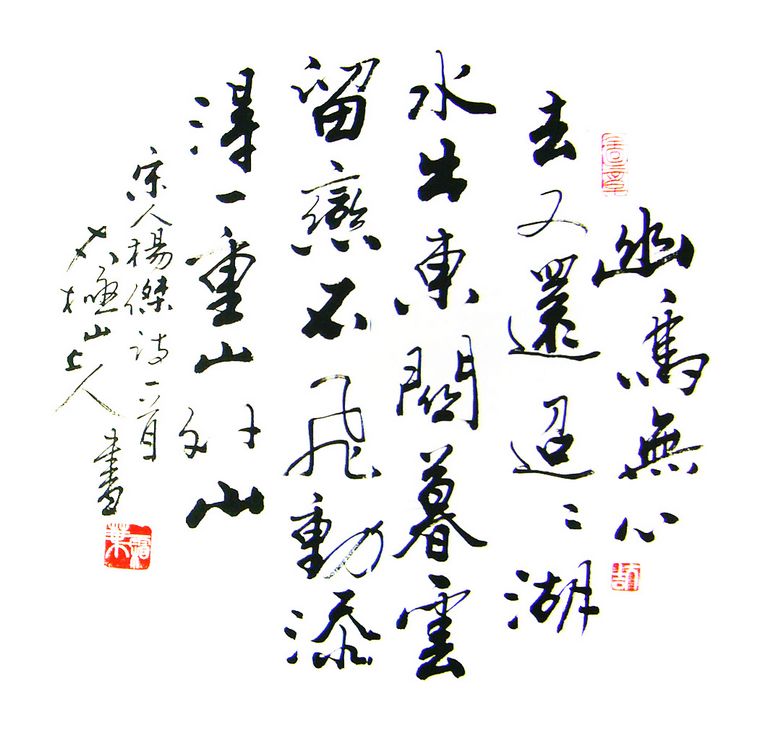 幽鳥無心
去又還迢々湖
水出東關暮雲
留戀不飛動添
得一重山外山
宋人楊傑詩一首
山上人書